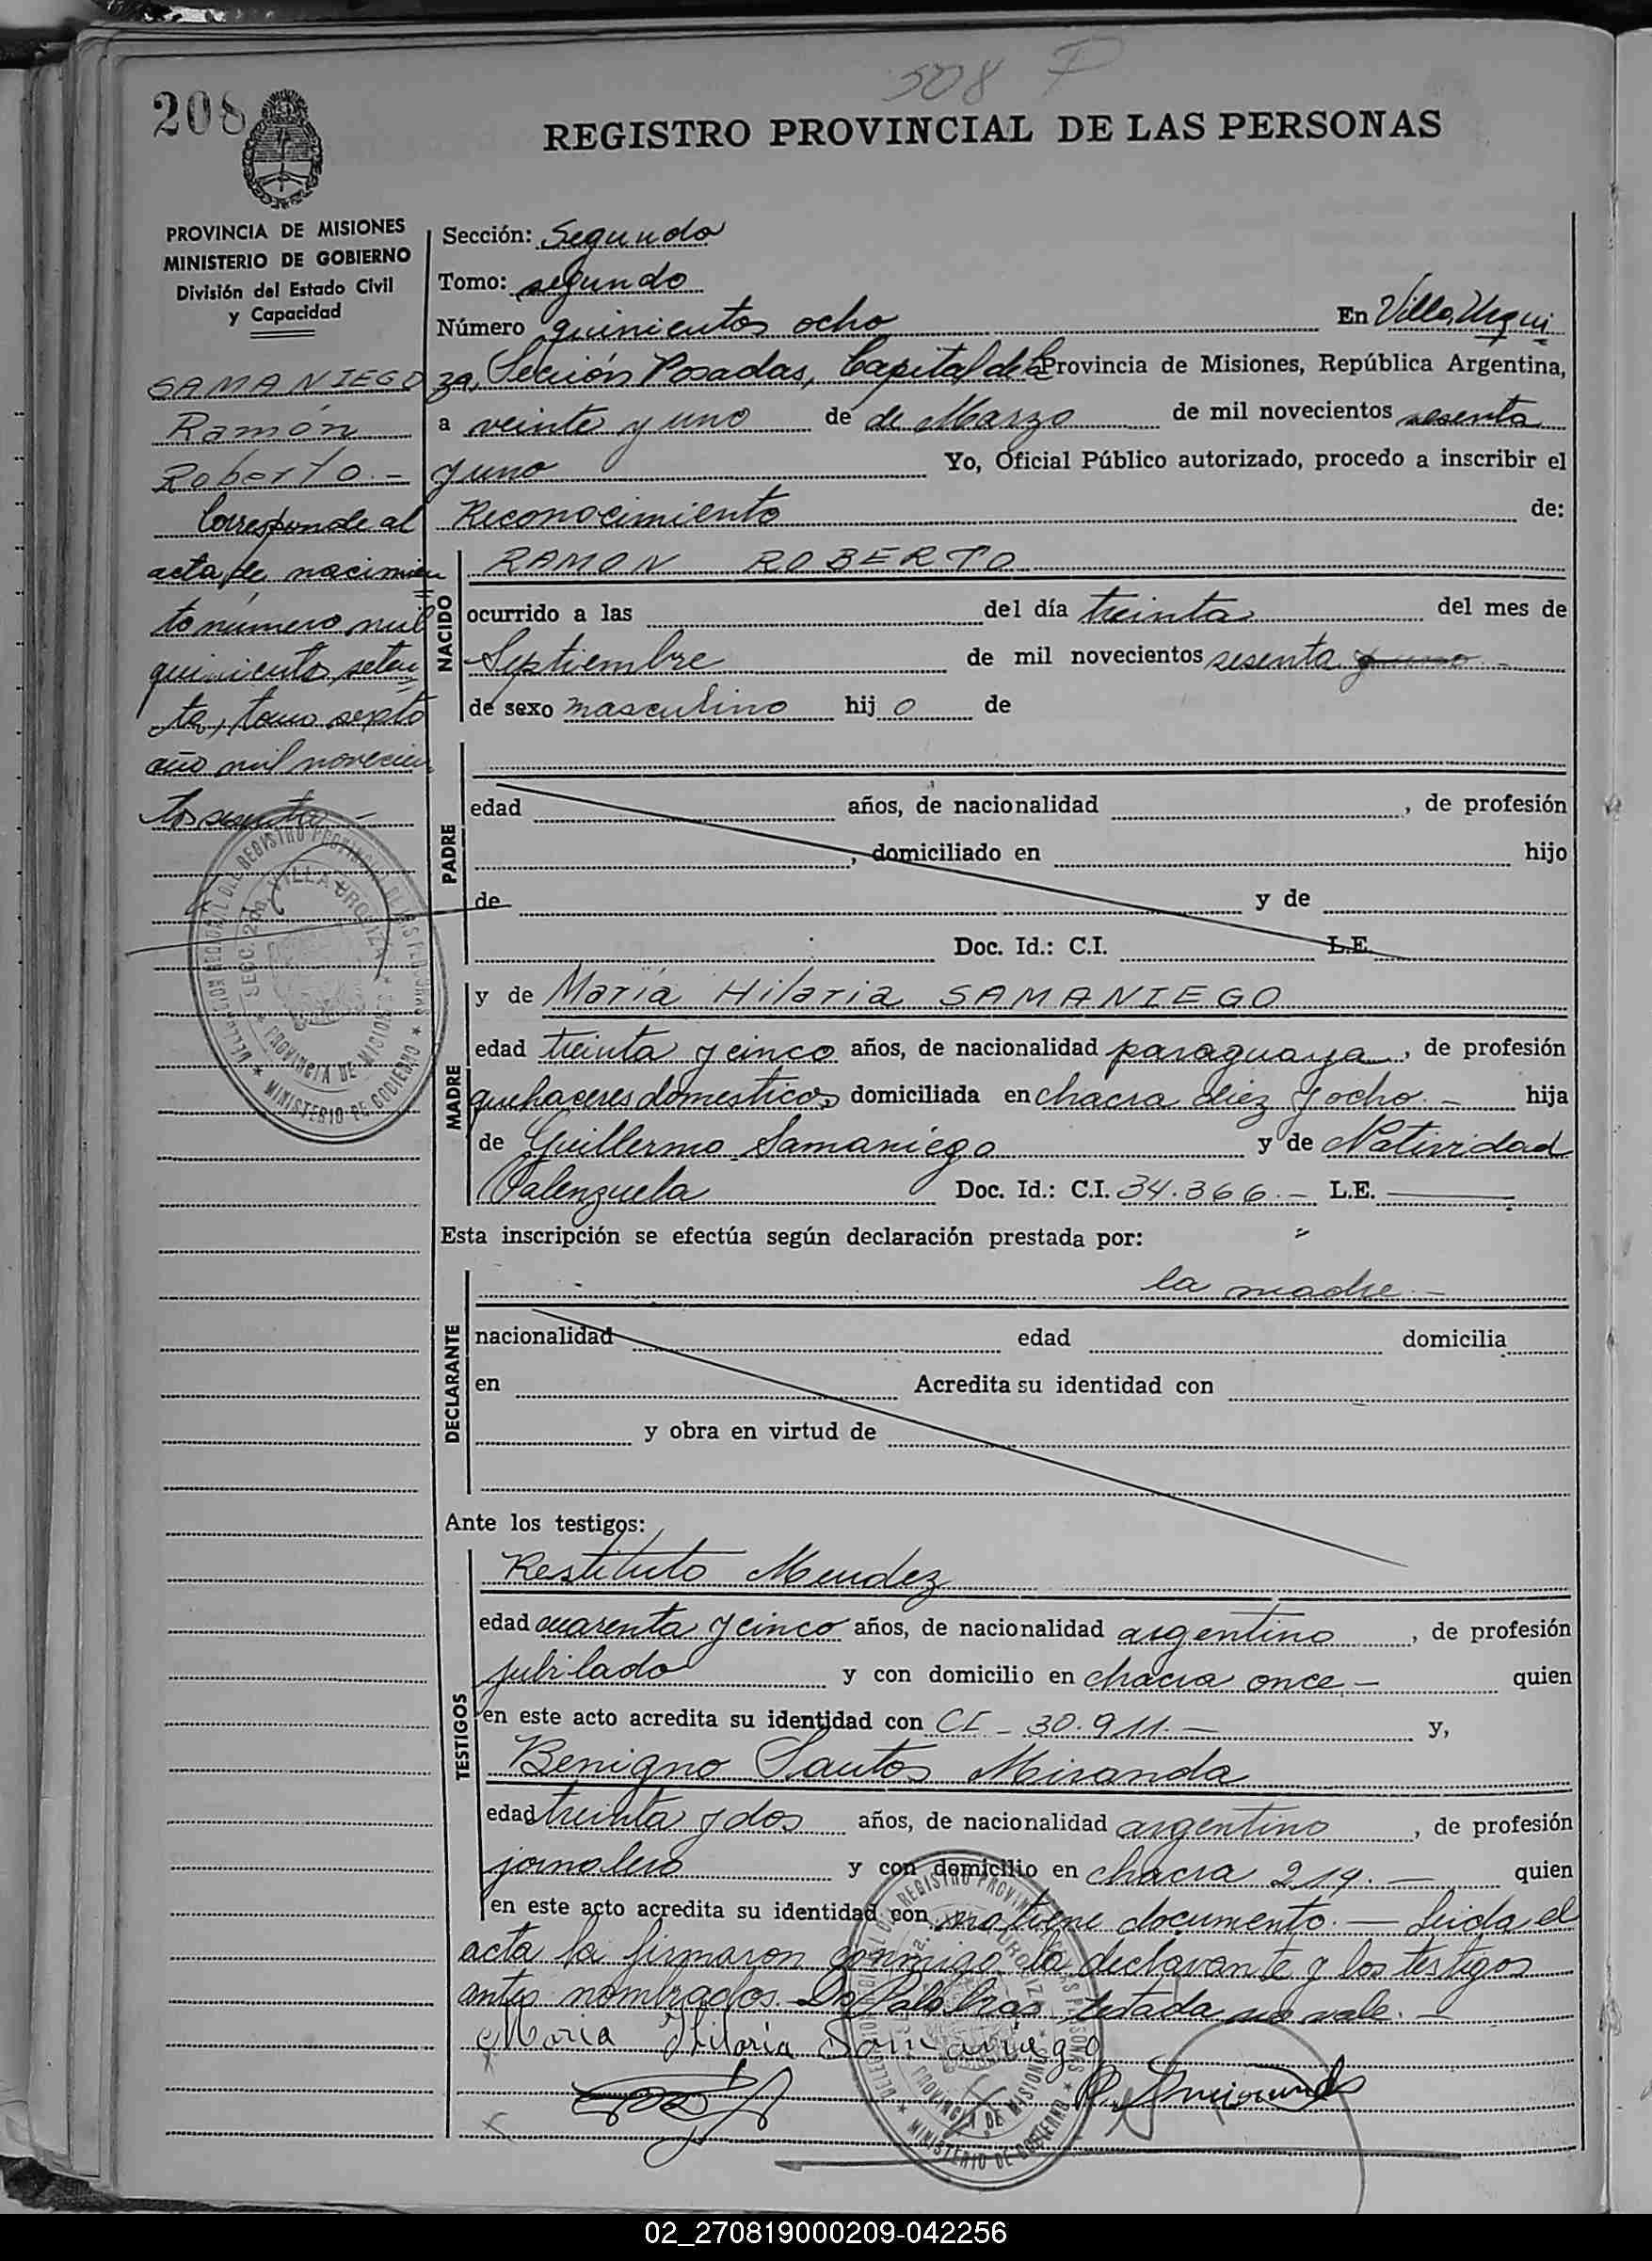 508 F
208
REGISTRO PROVINCIAL DE LAS PERSONAS
PROVINCIA DE MISIONES
MINISTERIO DE GOBIERNO
División del Estado Civil
y Capacidad
SAMANIEGO
Ramón
Roberto.-
Corresponde al
acta de nacimien
to número mil
quinientos seten
ta, tomo septo
año mil novecien
tos sesenta.-
Sección: Segunda
Tomo: segundo
Número quinientos ocho En Villa Urqui
za, Sección Posadas, Capital de la Provincia de Misiones, República Argentina,
a veinte y uno de de Marzo de mil novecientos sesenta
y uno Yo, Oficial Público autorizado, procedo a inscribir el
Reconocimiento de:
NACIDO
RAMON ROBERTO
ocurrido a las del día treinta del mes de
Septiembre de mil novecientos sesenta y uno.-
de sexo masculino hijo de
PADRE
edad años, de nacionalidad , de profesión
, domiciliado en hijo
de y de
Doc. Id.: C.I. L.E.
MADRE
y de María Hilaria SAMANIEGO
edad treinta y cinco años, de nacionalidad paraguaya, de profesión
quehaceres domesticos domiciliada en chacra diez y ocho.- hija
de Guillermo Samaniego y de Natividad
Valenzuela Doc. Id.: C.I. 34.366.- L.E.
Esta inscripción se efectúa según declaración prestada por:
la madre.-
DECLARANTE
nacionalidad edad domicilia
en Acredita su identidad con
y obra en virtud de
Ante los testigos:
TESTIGOS
Restituto Mendez
edad cuarenta y cinco años, de nacionalidad argentino, de profesión
jubilado y con domicilio en chacra once.- quien
en este acto acredita su identidad con CI - 30.911.- y,
Benigno Santos Miranda
edad treinta y dos años, de nacionalidad argentino, de profesión
jornalero y con domicilio en chacra 219.- quien
en este acto acredita su identidad con no tiene documento.- Leida el
acta la firmaron conmigo la declarante y los testigos
antes nombrados. Dos Palabras testada no vale.-
Maria Hilaria Samaniego
DELEGACION REGIONAL DEL REGISTRO PROVINCIAL DE LAS PERSONAS
SECC. 2da. VILLA URQUIZA
PROVINCIA DE MISIONES
MINISTERIO DE GOBIERNO
02_270819000209-042256